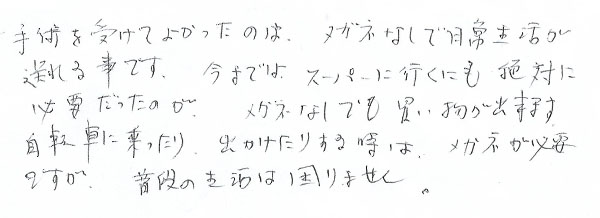 手術を受けてよかったのは、メガネなしで日常生活が
送れる事です。今までは スーパーに行くにも 絶対に
必要だったのが、メガネなしでも 買い物が出来ます
自転車に乗ったり、出かけたりする時は、メガネが必要
ですが、普段の生活は困りません。